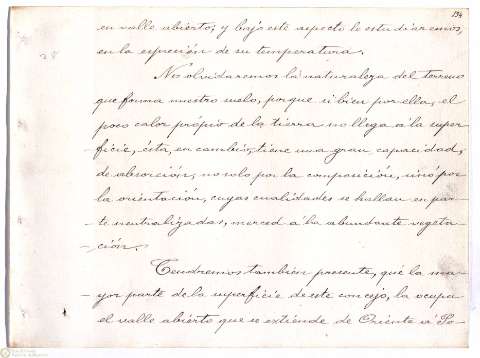 134
en valle abierto; y bajo este aspecto le estudiaremos,
en la expresión de su temperatura.
No olvidaremos la naturaleza del terreno
que forma nuestro suelo, porque si bien por ella, el
poco calor própio de la tierra no llega á la super-
ficie, ésta, en cambio, tiene una gran capacidad,
de absorción, no solo por la composición, sinó por
la orientación, cuyas cualidades se hallan en par-
te neutralizadas, merced á la abundante vegeta-
-ción.
Tendremos tambien presente, que la ma-
-yor parte de la superficie de este concejo, la ocupa
el valle abierto que se extiende de Oriente á Po-